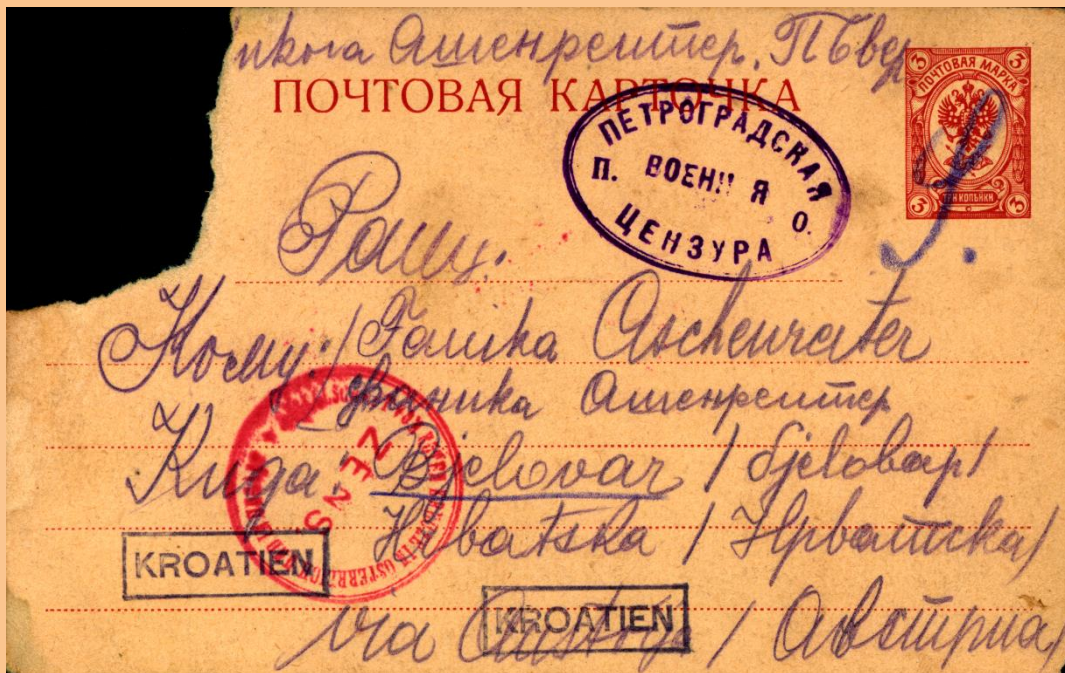 Ашенрейтер. Тверь
ПОЧТОВАЯ КАРТОЧКА
3 3
ПОЧТОВАЯ МАРКА
ТРИ КОПѢЙКИ
3 3
ПЕТРОГРАДСКАЯ
П. ВОЕНН Я О.
ЦЕНЗУРА
Кому: / Fanika Aschenraiter
Фаника Ашенрейтер
Куда: Bjelovar / Бjеловар /
Hrvatska / Hрватска /
ZENS
KROATIEN
KROATIEN
via / Австрия /